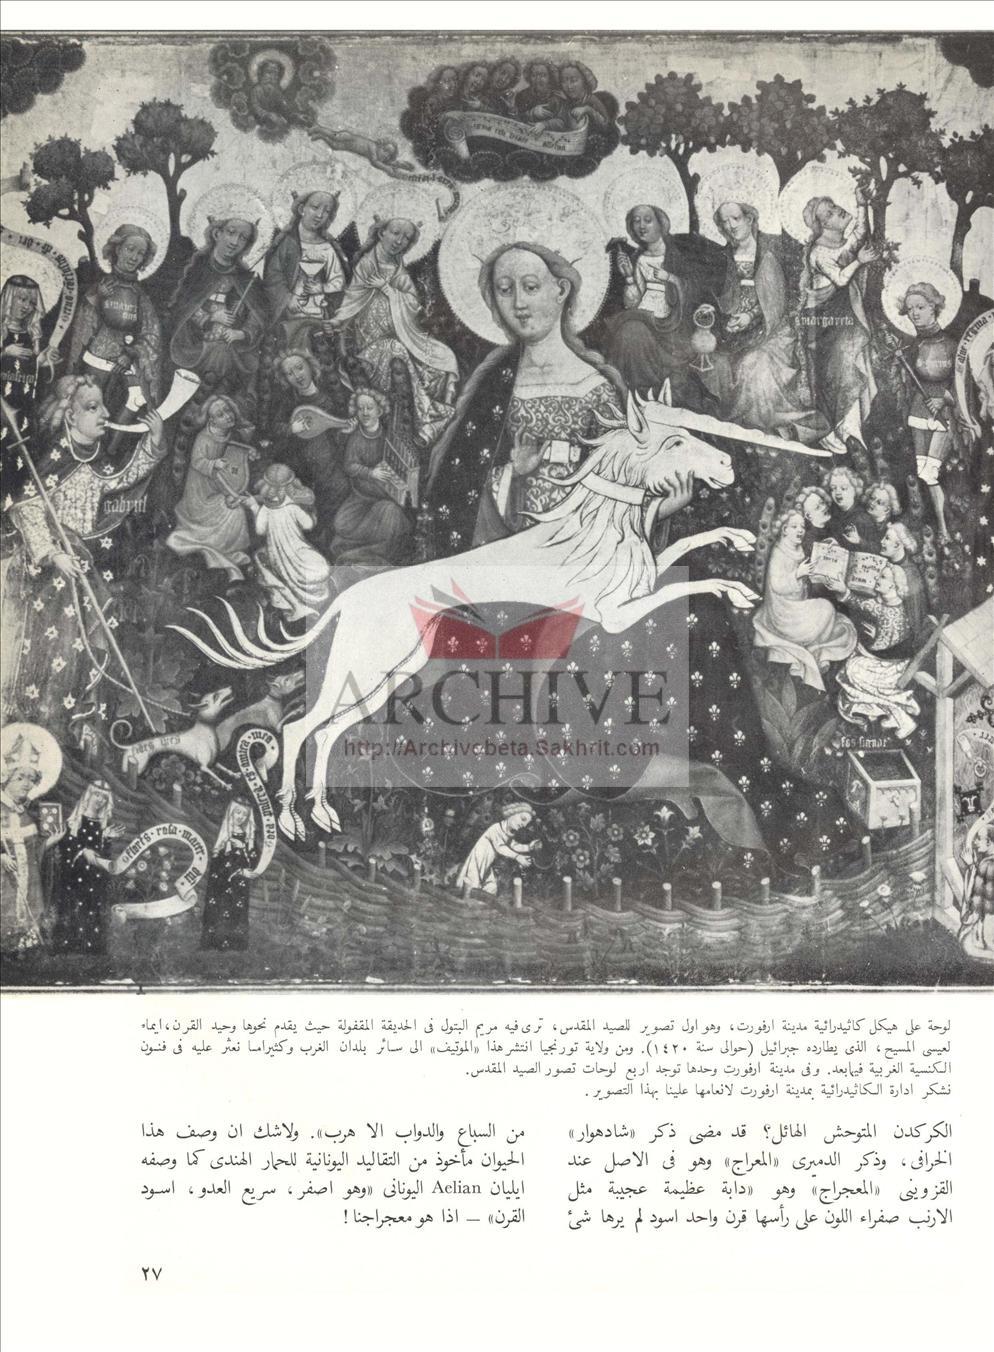 gabriel
margareta
flores · rosa · mante
ARCHIVE
http://Archivebeta.Sakhrit.com
لوحة على هيكل كاثيدرائية مدينة ارفورت، وهو اول تصوير للصيد المقدس، ترى فيه مريم البتول فى الحديقة المقفولة حيث يقدم نحوها وحيد القرن، ايماء
لعيسى المسيح، الذى يطارده جبرائيل (حوالى سنة ١٤٢٠). ومن ولاية تورنجيا انتشر هذا «الموتيف» الى سائر بلدان الغرب وكثيراما نعثر عليه فى فنون
الكنسية الغربية فيمابعد. وفى مدينة ارفورت وحدها توجد اربع لوحات تصور الصيد المقدس.
نشكر ادارة الكاثيدرائية بمدينة ارفورت لانعامها علينا بهذا التصوير.
الكركدن المتوحش الهائل؟ قد مضى ذكر «شادهوار»
الخرافى، وذكر الدميرى «المعراج» وهو فى الاصل عند
القزوينى «المعجراج» وهو «دابة عظيمة عجيبة مثل
الارنب صفراء اللون على رأسها قرن واحد اسود لم يرها شئ
من السباع والدواب الا هرب». ولاشك ان وصف هذا
الحيوان مأخوذ من التقاليد اليونانية للحمار الهندى كما وصفه
ايليان Aelian اليونانى «وهو اصفر، سريع العدو، اسود
القرن» — اذا هو معجراجنا!
٢٧